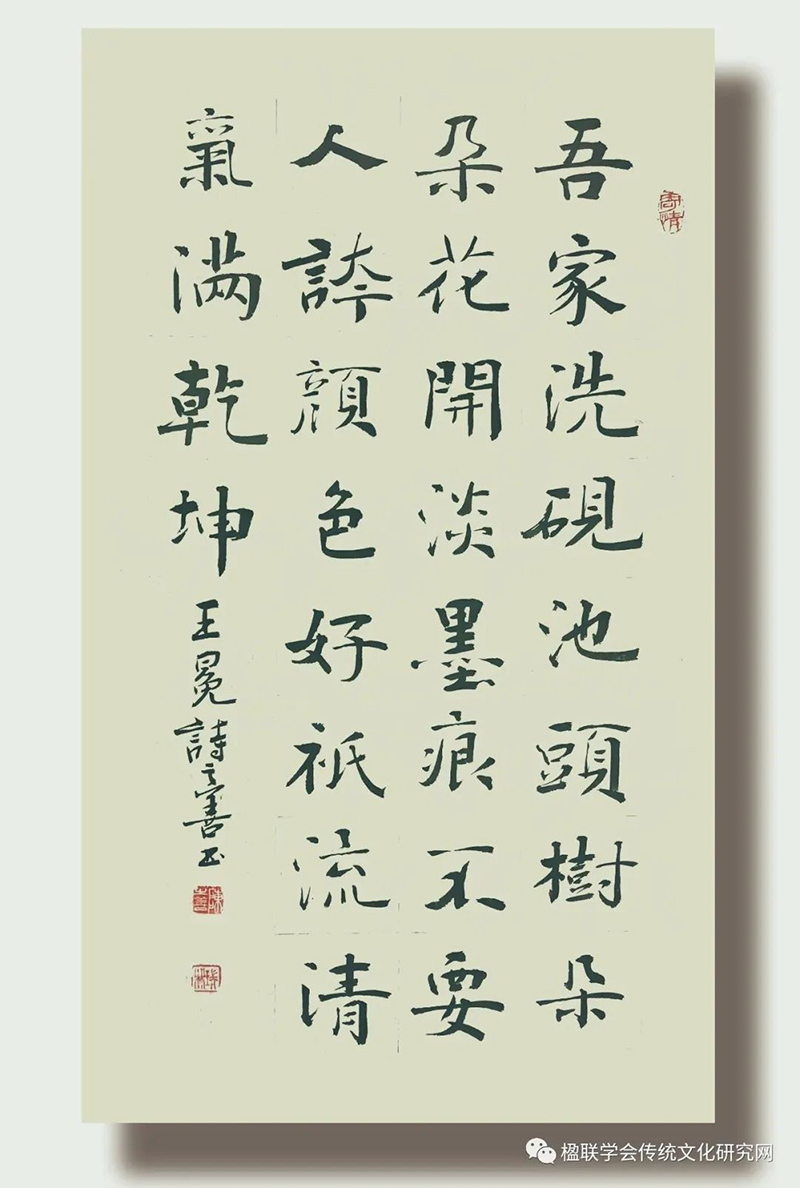 吾家洗硯池頭樹朵
朵花開淡墨痕不要
人誇顔色好祇流清
氣满乾坤
王冕詩
楹联学会传统文化研究网